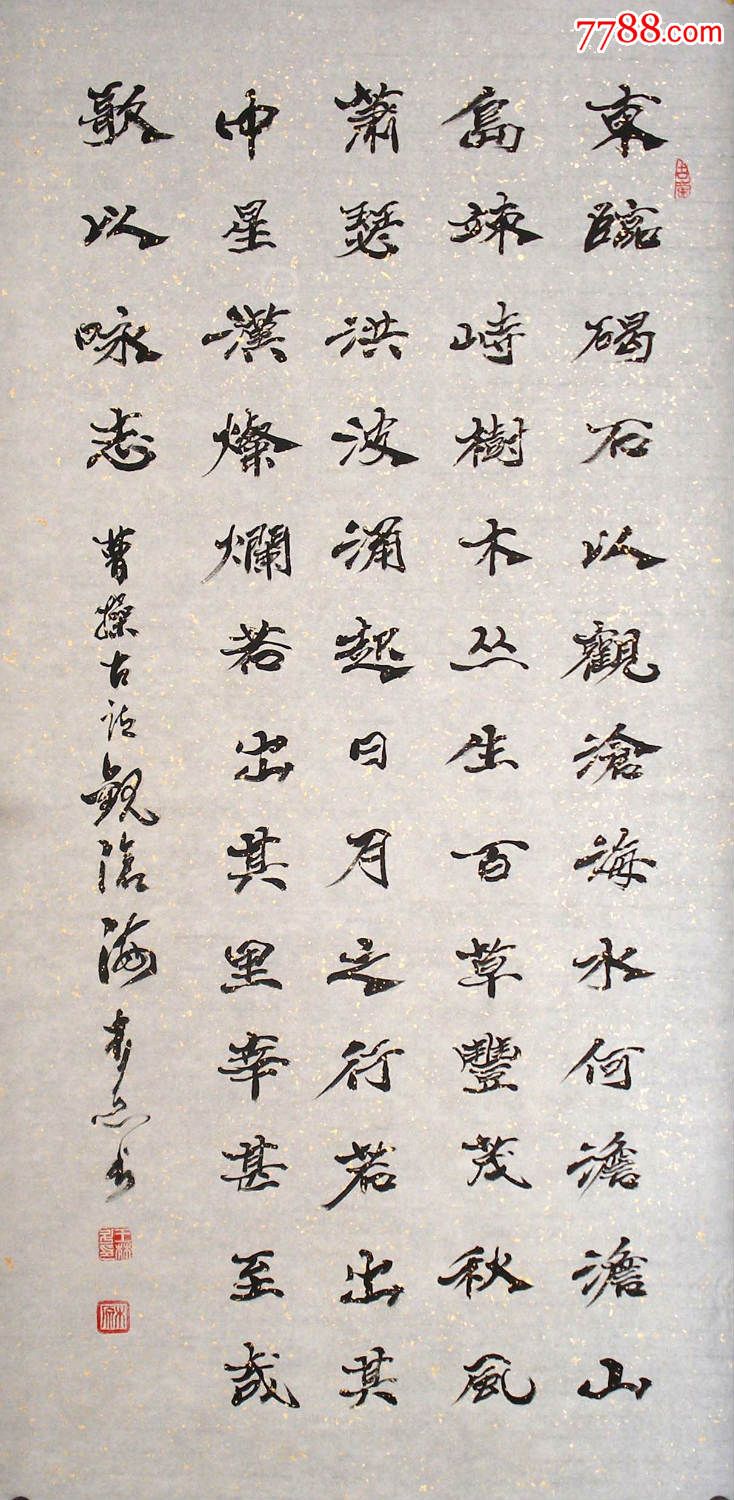 7788.com
東臨碣石以觀滄海水何澹澹山
島竦峙樹木丛生百草豐茂秋風
蕭瑟洪波涌起日月之行若出其
中星漢燦爛若出其里幸甚至哉
歌以咏志 曹操古詩觀滄海 书